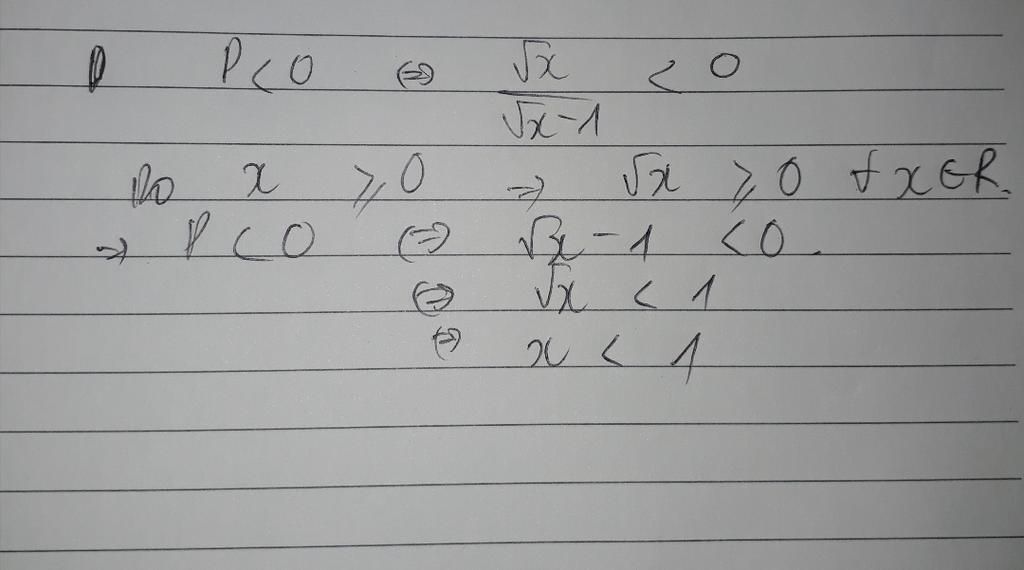 P P < 0 ⇔ √x / (√x - 1) < 0
Do x ≥ 0 → √x ≥ 0 ∀ x ∈ R.
→ P < 0 ⇔ √x - 1 < 0.
⇔ √x < 1
⇔ x < 1